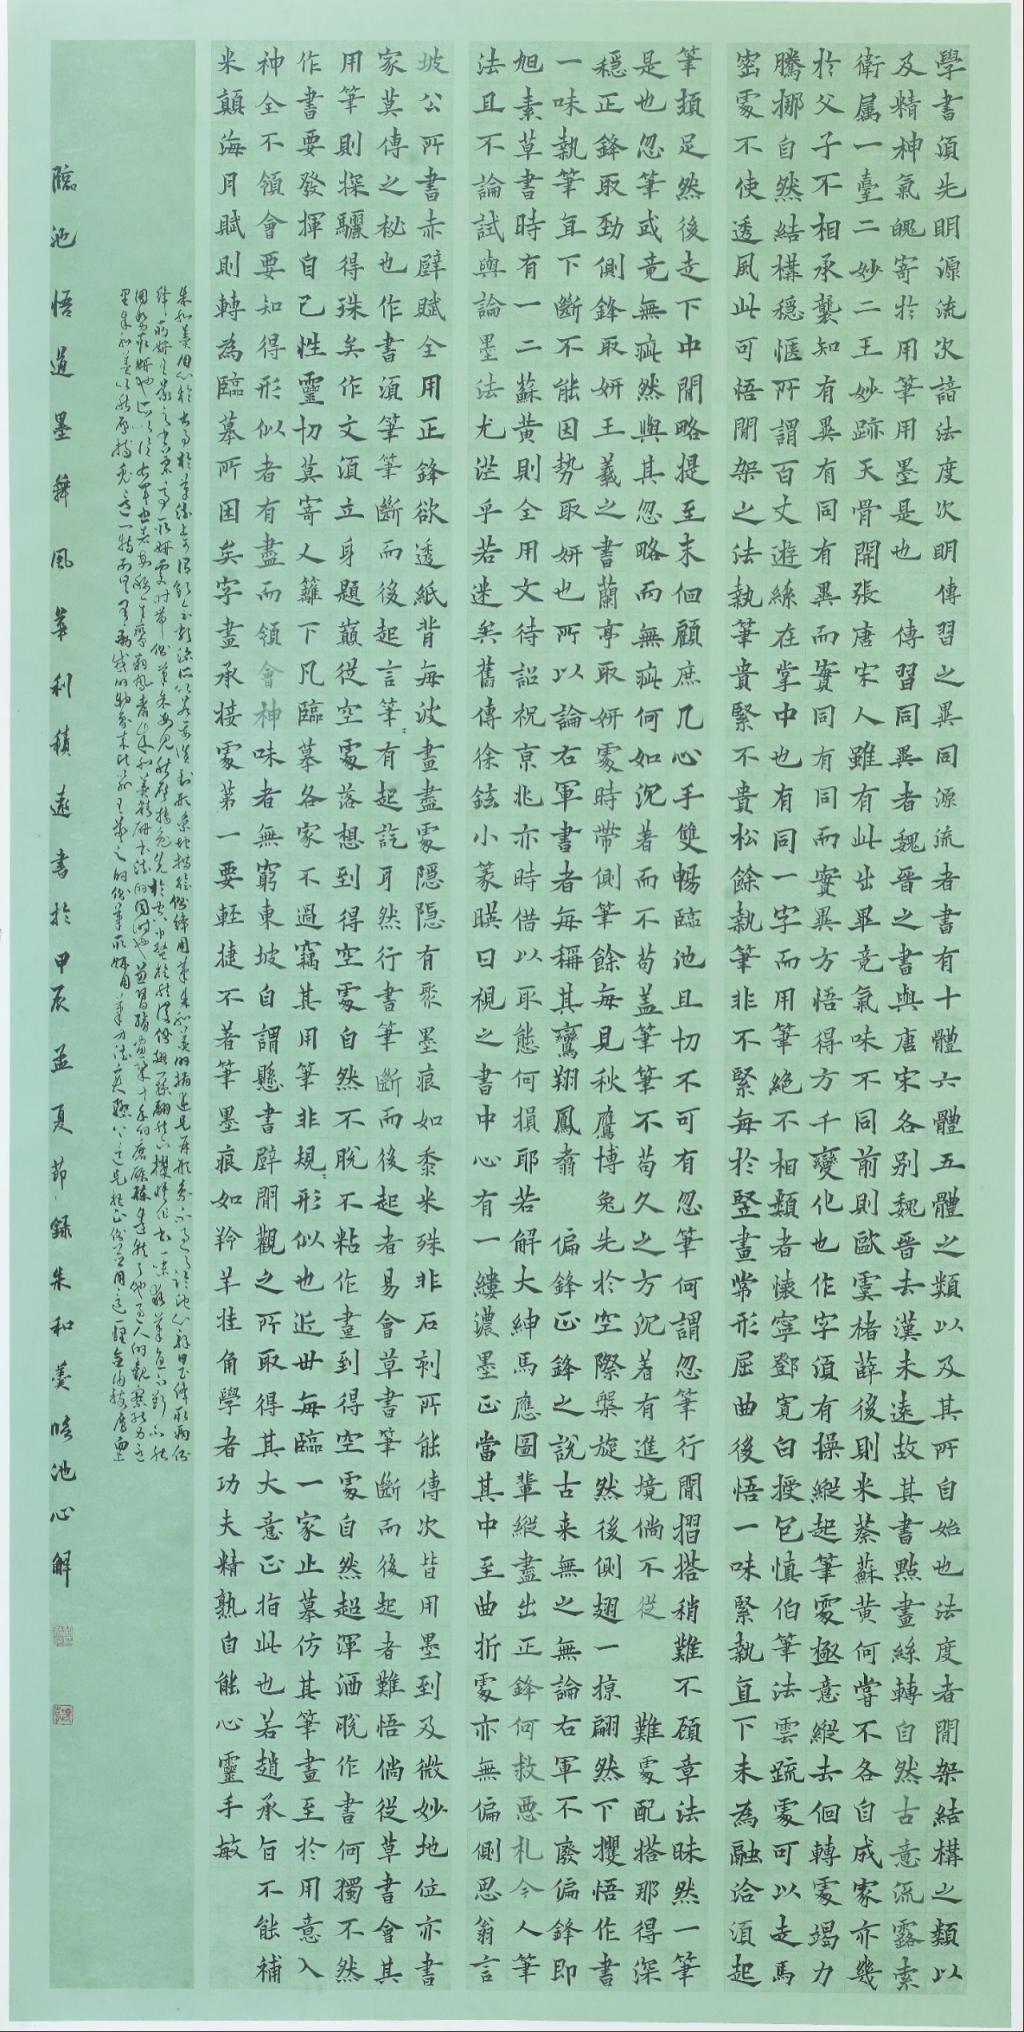 學書須先明源流次諳法度次明傳習之異同源流者書有十體六體五體之類以及其所自始也法度者間架結構之類以
及精神氣魄寄於用筆用墨是也 傳習同異者魏晉之書與唐宋各别魏晉去漢未遠故其書點畫絲轉自然古意流露索
衛属一臺二妙二王妙跡天骨開張唐宋人雖有此出畢竟氣味不同前則歐虞楮薛後則米蔡蘇黄何嘗不各自成家亦幾
於父子不相承襲知有異有同有異而實同有同而實異方悟得方千變化也作字須有操縱起筆處極意縱去佪轉處竭力
騰挪自然結構穩愜所謂百丈遊絲在掌中也有同一字而用筆絕不相類者懷寧鄧寬白授包慎伯筆法雲疏處可以走馬
密處不使透風此可悟間架之法執筆貴緊不貴松餘執筆非不緊每於竪畫常形屈曲後悟一味緊執直下未為融洽須起
筆頓足然後走下中間略提至末佪顧庶几心手雙暢臨池且切不可有忽筆何謂忽筆行間摺搭稍難不顧章法昧然一筆
是也忽筆或竟無疵然與其忽略而無疵何如沉著而不苟蓋筆筆不苟久之方沉著有進境倘不從 難處配搭那得深
穩正鋒取勁側鋒取妍王羲之書蘭亭取妍處時帶側筆餘每見秋鷹博兔先於空際槃旋然後側翅一掠翩然下攫悟作書
一味執筆直下斷不能因勢取妍也所以論右軍書者每稱其鸞翔鳳翥 偏鋒正鋒之說古来無之無論右軍不廢偏鋒即
旭素草書時有一二蘇黄則全用文待詔祝京兆亦時借以取態何損耶若解大紳馬應圖輩縱盡出正鋒何救惡札今人筆
法且不論試與論墨法尤茫乎若迷矣舊傳徐鉉小篆暎日視之書中心有一縷濃墨正當其中至曲折處亦無偏側思翁言
坡公所書赤壁賦全用正鋒欲透紙背每波畫盡處隱隱有聚墨痕如黍米殊非石刻所能傳次皆用墨到及微妙地位亦書
家莫傳之秘也作書須筆筆斷而後起言筆〻有起訖耳然行書筆斷而後起者易會草書筆斷而後起者難悟倘從草書會其
用筆則探驪得珠矣作文須立身題巔從空處落想到得空處自然不脫不粘作畫到得空處自然超渾洒脫作書何獨不然
作書要發揮自己性靈切莫寄人籬下凡臨摹各家不過竊其用筆非規〻形似也近世每臨一家止摹仿其筆畫至於用意入
神全不領會要知得形似者有盡而領會神味者無窮東坡自謂懸書壁間觀之所取得其大意正指此也若趙承旨不能補
米顛海月賦則轉為臨摹所困矣字畫承接處第一要輕捷不若筆墨痕如羚羊挂角學者功夫精熟自能心靈手敏
臨池悟道墨舞風華利積遠書於甲辰孟夏節錄朱和羹臨池心解